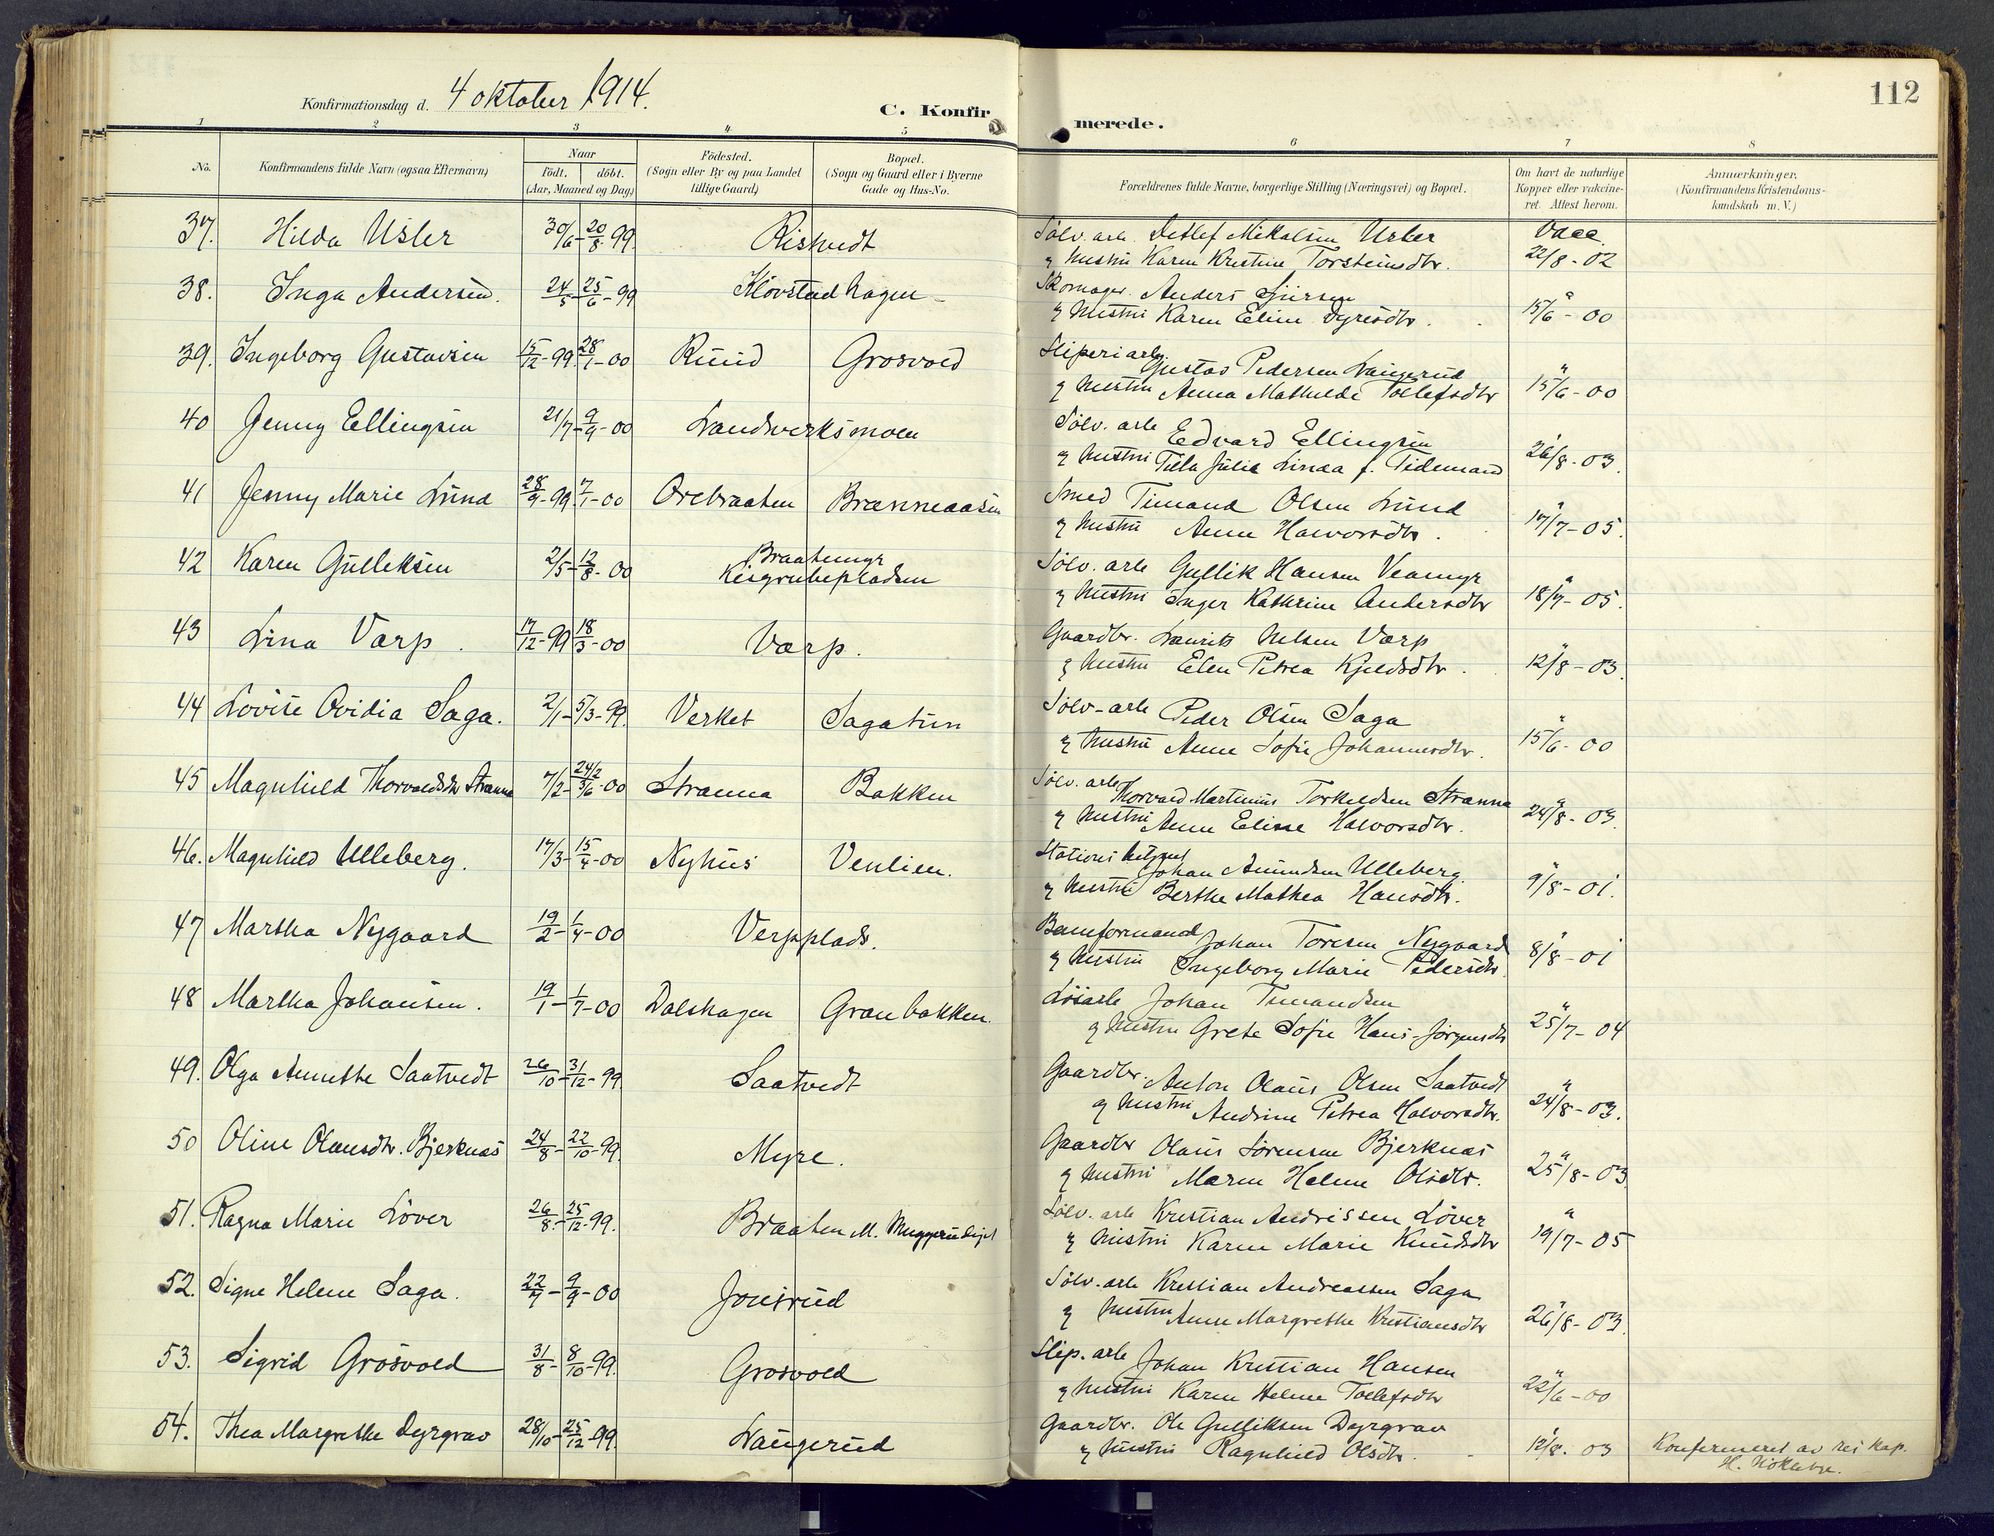 Konfirmationsdag d. 4 oktober 1914.
C. Konfirmerede.
112
1 2 3 4 5 6 7 8
No. Konfirmandens fulde Navn (ogsaa Efternavn)
Naar
Födt. döbt.
(Aar, Maaned og Dag)
Födested.
(Sogn eller By og paa Landet
tillige Gaard)
Bopæl.
(Sogn og Gaard eller i Byerne
Gade og Hus-No.
Forældrenes fulde Navne, borgerlige Stilling (Næringsvei) og Bopæl.
Om havt de naturlige
Kopper eller vakcine-
ret. Attest herom.
Anmærkninger.
(Konfirmandens Kristendoms-
kundskab m. V.)
37. Hilda Usler 30/6 - 20/8 99. Ristvedt Sølv. arb. Detlef Mikalsen Usler Vacc.
og Hustru Karen Kristine Torsteinsdtr. 22/8 - 02
38. Inga Andersen. 24/5 - 25/6 - 99 Kløvstadhagen Skomager. Anders
og Hustru Karen Eline Dyresdtr. 15/6 - 00
39. Ingeborg Gustavsen 15/12 - 99. 28/1 - 00 Ruud Grosvold Sliperiarb.
Gustav Pedersen Langerud
og Hustru Anna Mathilde Tollefsdtr 15/6 - 00
40 Jenny Ellingsen 21/7 - 9/9 - 00 Landverksmoen Sølv. arb Edvard Ellingsen
og Hustru Tilla Julie Linda f. Tidemand 26/8 - 03.
41 Jenny Marie Lund 28/9 - 99. 7/1 - 00 Orebraaten Brænneaasen Smed Timand Olsen Lund
og Hustru Anne Halvorsdtr. 17/7 - 05.
42 Karen Gulliksen 2/5 - 12/8 - 00 Braatemyr
Kisgrubepladsen Sølv. arb Gullik Hansen Veamyr
og Hustru Inger Kathrine Andersdtr 18/7 - 05.
43 Lina Værp. 17/12 - 99 18/3 - 00 Værp. Gaardbr. Laurits Nilsen Værp
og Hustru Elen Petrea Kjeldsdtr. 12/8 - 03.
44 Lovise Ovidia Saga. 2/1 - 5/3 - 99. Verket Sagatun Sølv - arb Peder Olsen Saga
og Hustru Anne Sofie Johannesdtr. 15/6 - 00
45 Magnhild Thorvaldsdtr Stranna 7/2 - 24/2 3/6 - 00 Stranna Bakken Sølv. arb
Thorvald Martinius Torkildsen Stranna
og Hustru Anne Elisse Halvorsdtr. 24/8 - 03.
46. Magnhild Ulleberg. 17/3 - 15/4 - 00 Nyhus Venlien. Stations betjent
Johan Amundsen Ulleberg
og Hustru Berthe Mathea Hansdtr. 9/8 - 01.
47 Martha Nygaard 19/2 - 1/4 - 00 Verpplads. Baneformand Johan Toresen Nygaard
og Hustru Ingeborg Marie Pedersdtr. 8/8 - 01
48 Martha Johansen. 19/1 - 1/7 - 00 Dalshagen Granbakken. Løsarb Johan Timandsen
og Hustru Grete Sofie Hans-Jørgensdtr 25/7 - 04
49. Olga Annette Saatvedt 26/10 - 31/12 - 99. Saatvedt Gaardbr. Anton Olaus Olsen Saatvedt
og Hustru Andrine Petrea Halvorsdtr. 24/8 - 03.
50 Oline Olausdtr. Bjerknæs 24/8 - 22/10 - 99. Myre. Gaardbr Olaus Sørensen Bjerknæs
og Hustru Maren Helene Olsdtr. 25/8 - 03.
51. Ragna Marie Løver 26/8 - 25/12 - 99. Braaten M. Muggerudeiet Sølv. arb Kristian Andrissen Løver
og Hustru Karen Marie Knudsdtr 19/7 - 05
52. Signe Helene Saga. 22/7 - 9/9 - 00 Jonsrud Sølv. arb Kristian Andreassen Saga
og Hustru Anne Margrethe Kristiansdtr 26/8 - 03.
53. Sigrid Grosvold 31/8 - 8/10 - 99. Grosvold Slip. arb Johan Kristian Hansen
og Hustru Karen Helene Tollefsdtr 22/6 - 00
54. Thea Margrethe Dyrgrav 28/10 - 25/12 - 99. Langerud Gaardbr. Ole Gulliksen Dyrgrav
og Hustru Ragnhild Olsdtr. 12/8. 03 Konfirmeret av res kap.
H.